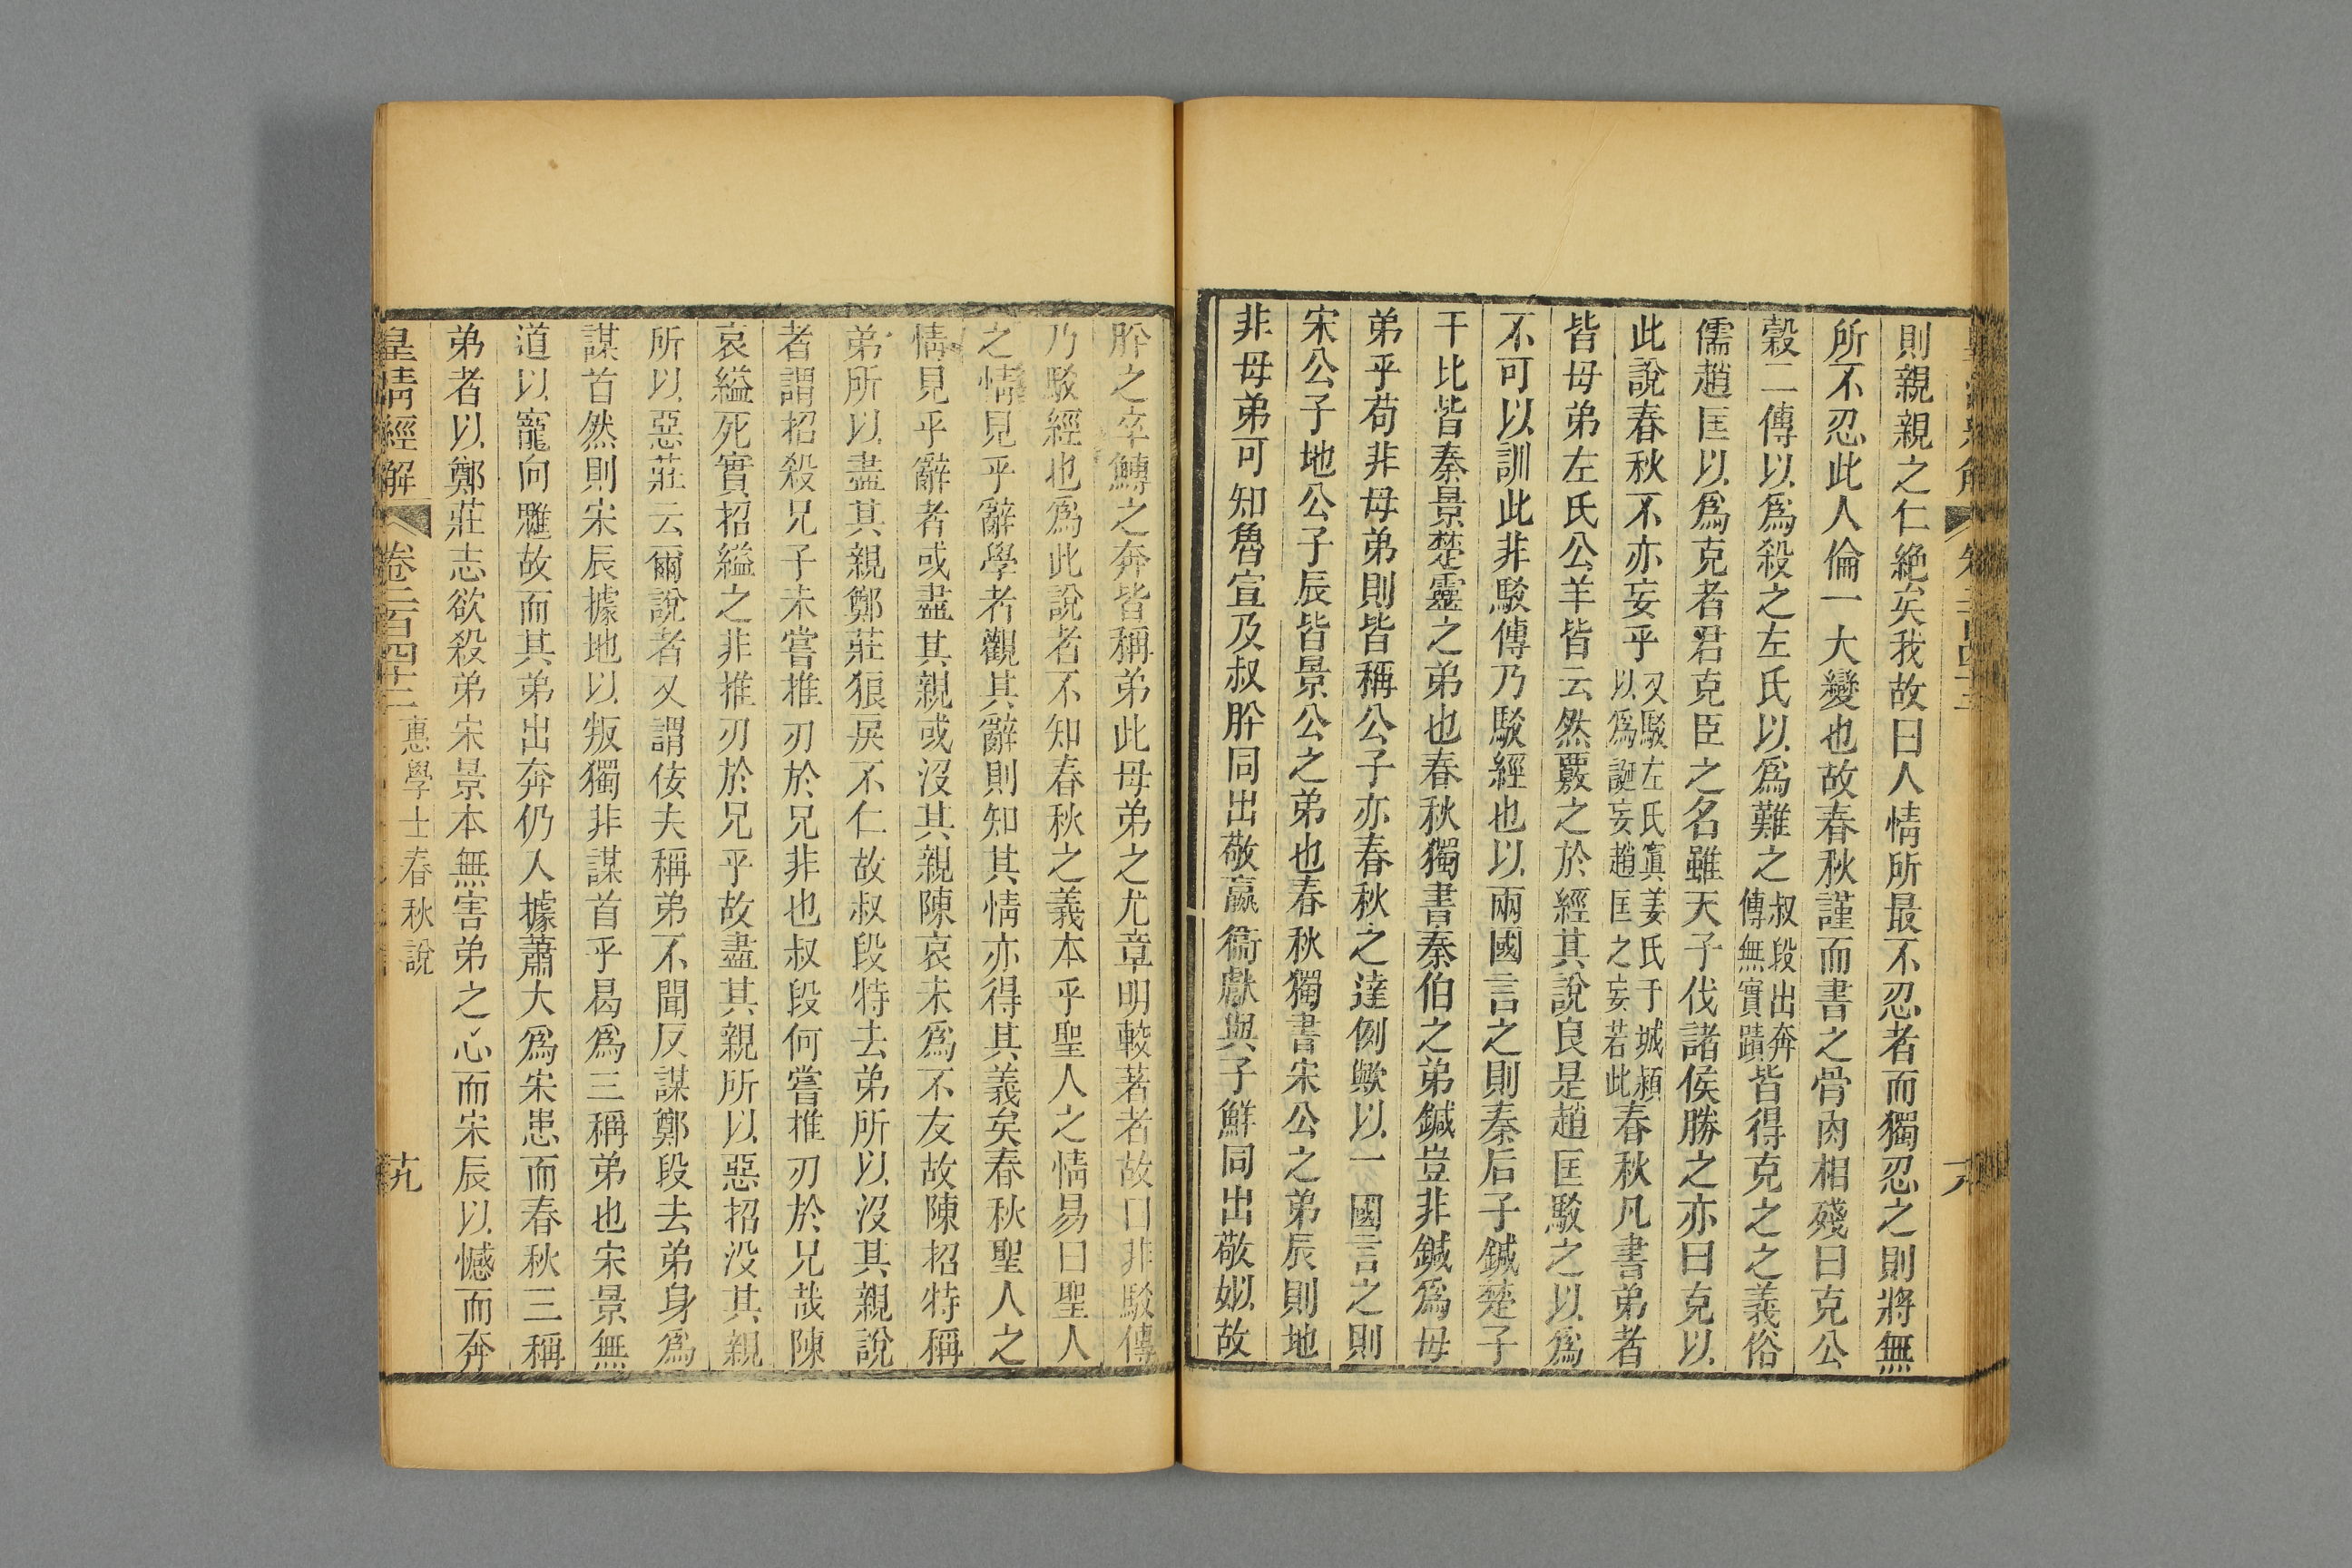 則親親之仁絶矣我故曰人情所最不忍者而獨忍之則將無
所不忍此人倫一大變也故春秋謹而書之骨肉相殘曰克公
穀二傳以爲殺之左氏以爲難之叔段出奔傳無實蹟皆得克之之義俗
儒趙匡以爲克者君克臣之名雖天子伐諸侯勝之亦曰克以
此說春秋不亦妄乎又駁左氏寘姜氏于城潁以爲誕妄趙匡之妄若此春秋凡書弟者
皆母弟左氏公羊皆云然覈之於經其說良是趙匡駁之以爲
不可以訓此非駁傳乃駁經也以兩國言之則秦后子鍼楚子
干比皆秦景楚靈之弟也春秋獨書秦伯之弟鍼豈非鍼爲母
弟乎苟非母弟則皆稱公子亦春秋之達例歟以一國言之則
宋公子地公子辰皆景公之弟也春秋獨書宋公之弟辰則地
非母弟可知魯宣及叔肸同出敬嬴衞獻與子鮮同出敬姒故
肸之卒鱄之奔皆稱弟此母弟之尤章明較著者故曰非駁傳
乃駁經也爲此說者不知春秋之義本乎聖人之情易曰聖人
之情見乎辭學者觀其辭則知其情亦得其義矣春秋聖人之
情見乎辭者或盡其親或沒其親陳哀未爲不友故陳招特稱
弟所以盡其親鄭莊狠戾不仁故叔段特去弟所以沒其親說
者謂招殺兄子未嘗推刃於兄非也叔段何嘗推刃於兄哉陳
哀縊死實招縊之非推刃於兄乎故盡其親所以惡招沒其親
所以惡莊云爾說者又謂佞夫稱弟不聞反謀鄭段去弟身爲
謀首然則宋辰據地以叛獨非謀首乎曷爲三稱弟也宋景無
道以寵向魋故而其弟出奔仍入據蕭大爲宋患而春秋三稱
弟者以鄭莊志欲殺弟宋景本無害弟之心而宋辰以憾而奔
皇淸經解 卷二百四十三 惠學士春秋說 十九